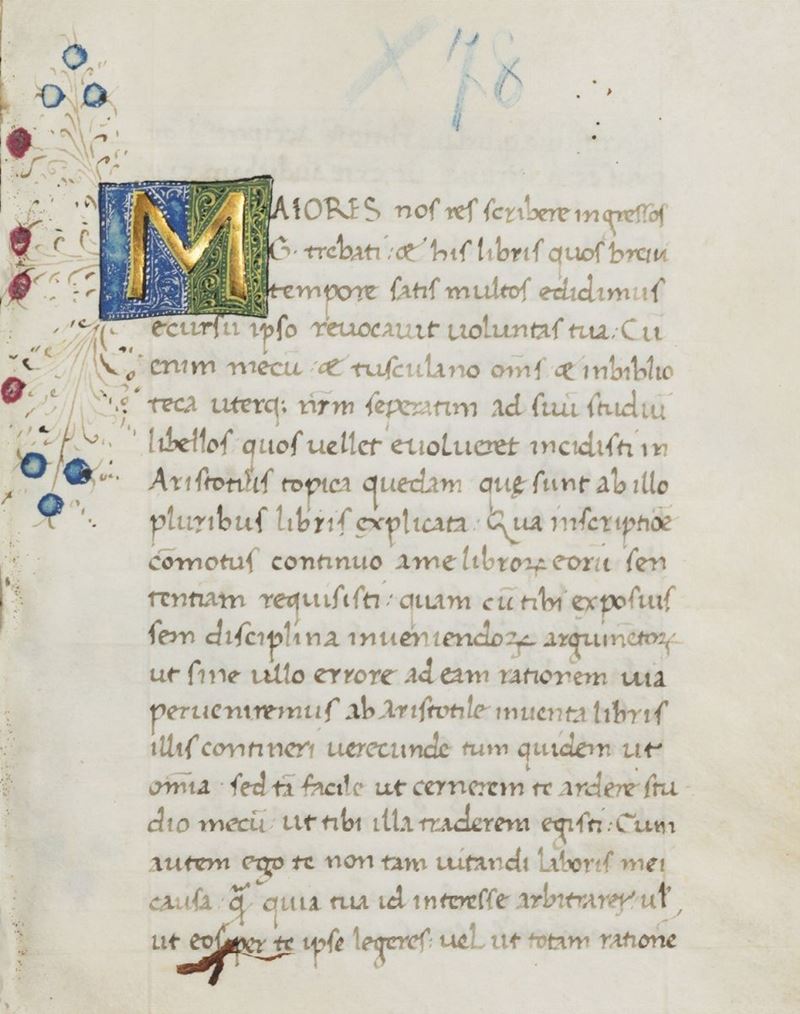 78
MAIORES nos res scribere ingressos
G. trebati: & his libris quos breui
tempore satis multos edidimus
ecursu ipso reuocauit uoluntas tua. Cū
enim mecū & tusculano oīns & inbiblio
teca uterq; nr̄m seperatim ad suū studiū
libellos quos uellet euolueret incidisti in
Aristotilis topica quedam quę sunt ab illo
pluribus libris explicata. Qua inscriptiōe
cōmotus continuo ame libroꝝ eorū sen
tentiam requisisti: quam cū tibi exposuis
sem disciplina inueniendoꝝ argumētoꝝ
ut sine ullo errore ad eam rationem uia
perueniremus ab Aristotile inuenta libris
illis contineri uerecunde tum quidem ut
omīa sed tā facile ut cernerem te ardere stu
dio mecū ut tibi illa traderem egisti. Cum
autem ego te non tam uitandi laboris mei
causa q̄ quia tua id interesse arbitrarer ul̄
ut eos per te ipse legeres: uel ut totam rationē